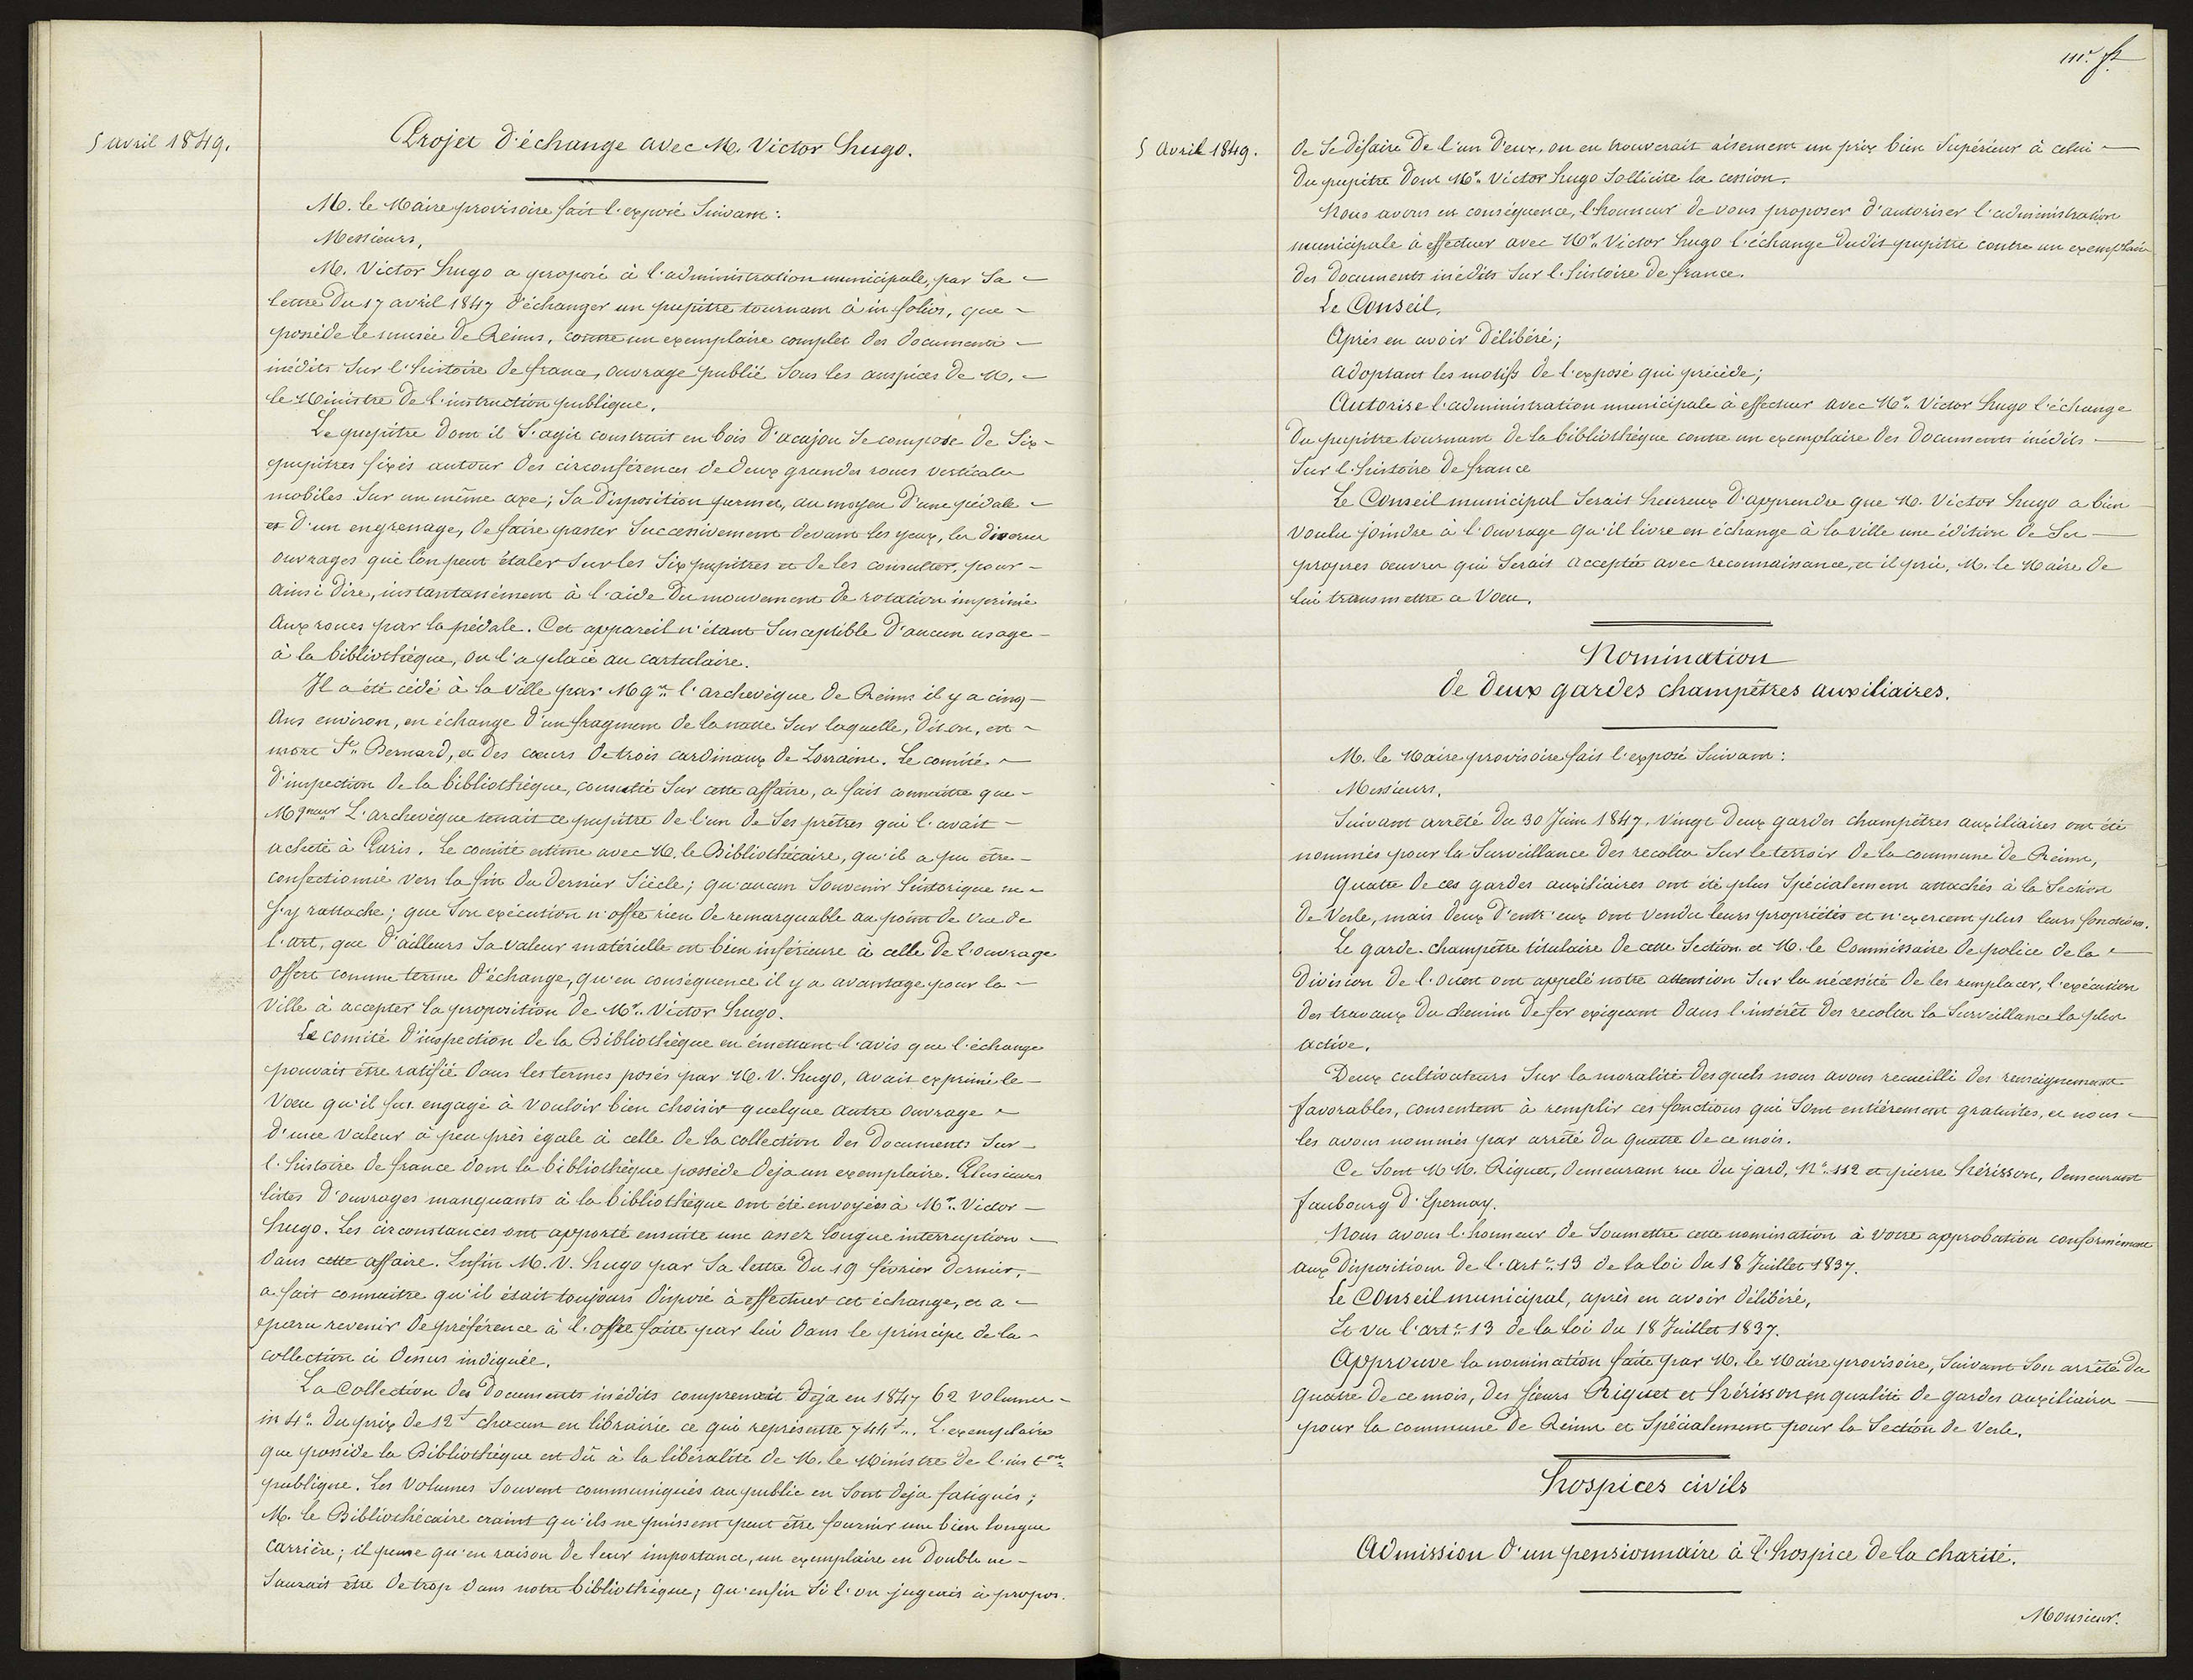 5 avril 1849.
Projet d'échange avec M. Victor hugo.
M. le Maire provisoire fait l'exposé suivant:
Messieurs,
M. Victor hugo a proposé à l'administration municipale, par sa
lettre du 17 avril 1847 d'échanger un pupitre tournant à in folios, que
possède le musée de Reims, contre un exemplaire complet des documents
inédits sur l'histoire de france, ouvrage publié sous les auspices de M.
le Ministre de l'instruction publique.
Le pupitre dont il s'agit construit en bois d'acajou se compose de six
pupitres fixés autour des circonférences de deux grandes roues verticales
mobiles sur un même axe; sa disposition permet, au moyen d'une pédale
et d'un engrenage, de faire passer successivement devant les yeux, les divers
ouvrages que l'on peut étaler sur les six pupitres et de les consulter, pour
ainsi dire, instantanément à l'aide du mouvement de rotation imprimé
aux roues par la pédale. Cet appareil n'étant susceptible d'aucun usage
à la bibliothèque, on l'a placé au cartulaire.
Il a été cédé à la ville par Mgr. l'archevêque de Reims il y a cinq
ans environ, en échange d'un fragment de la natte sur laquelle, dit on, est
mort St. Bernard, et des cœurs de trois cardinaux de Lorraine. Le comité
d'inspection de la bibliothèque, consulté sur cette affaire, a fait connaître que
Mgneur L'archevêque tenait ce pupitre de l'un de ses prêtres qui l'avait
acheté à Paris. Le comité estime avec M. le Bibliothécaire, qu'il a pu être
confectionné vers la fin du dernier siècle; qu'aucun souvenir historique ne
s'y rattache; que son exécution n'offre rien de remarquable au point de vue de
l'art, que d'ailleurs sa valeur matérielle est bien inférieure à celle de l'ouvrage
offert comme terme d'échange, qu'en conséquence il y a avantage pour la
ville à accepter la proposition de Mr. Victor hugo.
Le comité d'inspection de la Bibliothèque en émettant l'avis que l'échange
pouvait être ratifié dans les termes posés par M. V. hugo, avait exprimé le
vœu qu'il fut engagé à vouloir bien choisir quelque autre ouvrage
d'une valeur à peu près égale à celle de la collection des documents sur
l'histoire de france dont la bibliothèque possède déja un exemplaire. Plusieurs
listes d'ouvrages manquants à la bibliothèque ont été envoyées à Mr. Victor
hugo. Les circonstances ont apporté ensuite une assez longue interruption
dans cette affaire. Enfin M. V. hugo par sa lettre du 19 février dernier,
a fait connaitre qu'il était toujours disposé à effectuer cet échange, et a
paru revenir de préférence à l'offre faite par lui dans le principe de la
collection ci dessus indiquée.
La Collection des documents inédits comprenait déja en 1847 62 volumes
in 4o. du prix de 12f chacun en librairie ce qui représente 744f. L'exemplaire
que possède la Bibliothèque est dû à la libéralité de M. le Ministre de l'inston
publique. Les volumes souvent communiqués au public en sont déja fatigués;
M. le Bibliothécaire craint qu'ils ne puissent peut être fournir une bien longue
carrière; il pense qu'en raison de leur importance, un exemplaire en double ne
saurait être de trop dans notre bibliothèque; qu'enfin si l'on jugeait à propos.
5 Avril 1849.
de se défaire de l'un d'eux, on en trouverait aisement un prix bien supérieur à celui
du pupitre dont Mr. Victor hugo sollicite la cession.
Nous avons en conséquence, l'honneur de vous proposer d'autoriser l'administration
municipale à effectuer avec Mr. Victor hugo l'échange dudit pupitre contre un exemplaire
des documents inédits sur l'histoire de france.
Le Conseil,
Après en avoir délibéré;
adoptant les motifs de l'exposé qui précède;
Autorise l'administration municipale à effectuer avec Mr. Victor hugo l'échange
du pupitre tournant de la bibliothèque contre un exemplaire des documents inédits
sur l'histoire de france
Le Conseil municipal serait heureux d'apprendre que M. Victor hugo a bien
voulu joindre à l'ouvrage qu'il livre en échange à la ville une édition de ses
propres œuvres qui serait acceptée avec reconnaissance, et il prie, M. le Maire de
lui transmettre ce vœu.
Nomination
de deux gardes champêtres auxiliaires.
M. le Maire provisoire fait l'exposé suivant:
Messieurs,
Suivant arrêté du 30 Juin 1847. vingt deux gardes champêtres auxiliaires ont été
nommés pour la surveillance des recoltes sur le terroir de la commune de Reims,
quatre de ces gardes auxiliaires ont été plus spécialement attachés à la section
de Vesle, mais deux d'entr'eux ont vendu leurs propriétés et n'exercent plus leurs fonctions.
Le garde-champêtre titulaire de cette section et M. le Commissaire de police de la
division de l'ouest ont appelé notre attention sur la nécessité de les remplacer, l'exécution
des travaux du chemin de fer exigeant dans l'intérêt des recoltes la surveillance la plus
active.
Deux cultivateurs sur la moralité desquels nous avons recueilli des renseignements
favorables, consentent à remplir ces fonctions qui sont entièrement gratuites, et nous
les avons nommés par arrêté du quatre de ce mois.
Ce sont MM. Riquet, demeurant rue du jard, No. 112 et pierre hérisson, demeurant
faubourg d'Epernay.
Nous avons l'honneur de soumettre cette nomination à votre approbation conformément
aux dispositions de l'arte. 13 de la loi du 18 Juillet 1837.
Le Conseil municipal, après en avoir délibéré,
Et vu l'arte. 13 de la loi du 18 Juillet 1837.
Approuve la nomination faite par M. le Maire provisoire, suivant son arrêté du
quatre de ce mois, des sieurs Riquet et hérisson en qualité de gardes auxiliaires
pour la commune de Reims et spécialement pour la section de Vesle.
hospices civils
Admission d'un pensionnaire à l'hospice de la charité.
Monsieur.